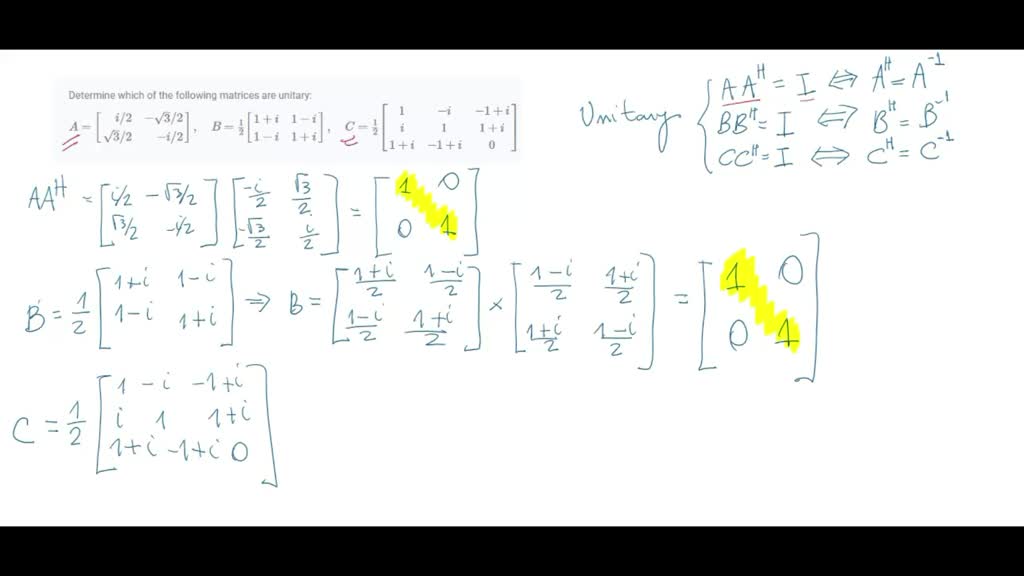 Determine which of the following matrices are unitary:
A = [ i/2 −√3/2 ; √3/2 −i/2 ], B = 1/2 [ 1+i 1−i ; 1−i 1+i ], C = 1/2 [ 1 −i −1+i ; i 1 1+i ; 1+i −1+i 0 ]
Unitary { AA^H = I ⇔ A^H = A^-1
BB^H = I ⇔ B^H = B^-1
CC^H = I ⇔ C^H = C^-1
AA^H = [ i/2 −√3/2 ; √3/2 −i/2 ] [ −i/2 √3/2 ; −√3/2 i/2 ] = [ 1 0 ; 0 1 ]
B = 1/2 [ 1+i 1−i ; 1−i 1+i ] ⇒ B = [ 1+i/2 1−i/2 ; 1−i/2 1+i/2 ] × [ 1−i/2 1+i/2 ; 1+i/2 1−i/2 ] = [ 1 0 ; 0 1 ]
C = 1/2 [ 1 −i −1+i ; i 1 1+i ; 1+i −1+i 0 ]